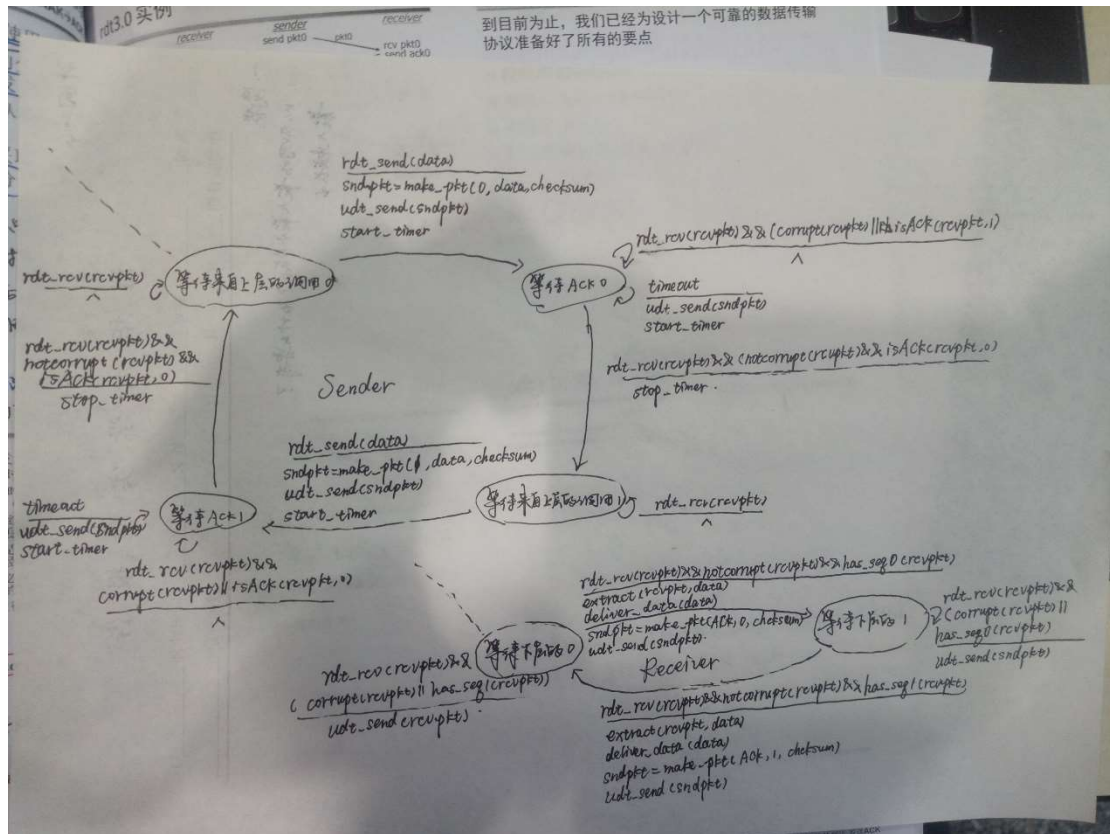 rdt3.0 实例
receiver
sender
receiver
send pkt0
pkt0
rcv pkt0
send ack0
到目前为止，我们已经为设计一个可靠的数据传输
协议准备好了所有的要点
rdt_send(data)
sndpkt=make_pkt(0,data,checksum)
udt_send(sndpkt)
start_timer
rdt_rcv(rcvpkt)
Λ
等待来自上层的调用0
等待ACK0
rdt_rcv(rcvpkt)&&(corrupt(rcvpkt)||isAck(rcvpkt,1)
Λ
timeout
udt_send(sndpkt)
start_timer
rdt_rcv(rcvpkt)&&(notcorrupt(rcvpkt)&&isAck(rcvpkt,0)
stop_timer.
rdt_rcv(rcvpkt)&&
notcorrupt(rcvpkt)&&
isAck(rcvpkt,0)
stop_timer
Sender
rdt_send(data)
sndpkt=make_pkt(1,data,checksum)
udt_send(sndpkt)
start_timer
等待来自上层的调用1
rdt_rcv(rcvpkt)
Λ
timeout
udt_send(sndpkt)
start_timer
等待ACK1
rdt_rcv(rcvpkt)&&
corrupt(rcvpkt)||isAck(rcvpkt,0)
Λ
rdt_rcv(rcvpkt)&&notcorrupt(rcvpkt)&&has_seq0(rcvpkt)
extract(rcvpkt,data)
deliver_data(data)
sndpkt=make_pkt(ACK,0,checksum)
udt_send(sndpkt).
等待下层的0
等待下层的1
rdt_rcv(rcvpkt)&&
(corrupt(rcvpkt)||
has_seq0(rcvpkt)
udt_send(sndpkt)
Receiver
rdt_rcv(rcvpkt)&&
(corrupt(rcvpkt)||has_seq1(rcvpkt))
udt_send(rcvpkt).
rdt_rcv(rcvpkt)&&notcorrupt(rcvpkt)&&has_seq1(rcvpkt)
extract(rcvpkt,data)
deliver_data(data)
sndpkt=make_pkt(ACK,1,chcksum)
udt_send(sndpkt)